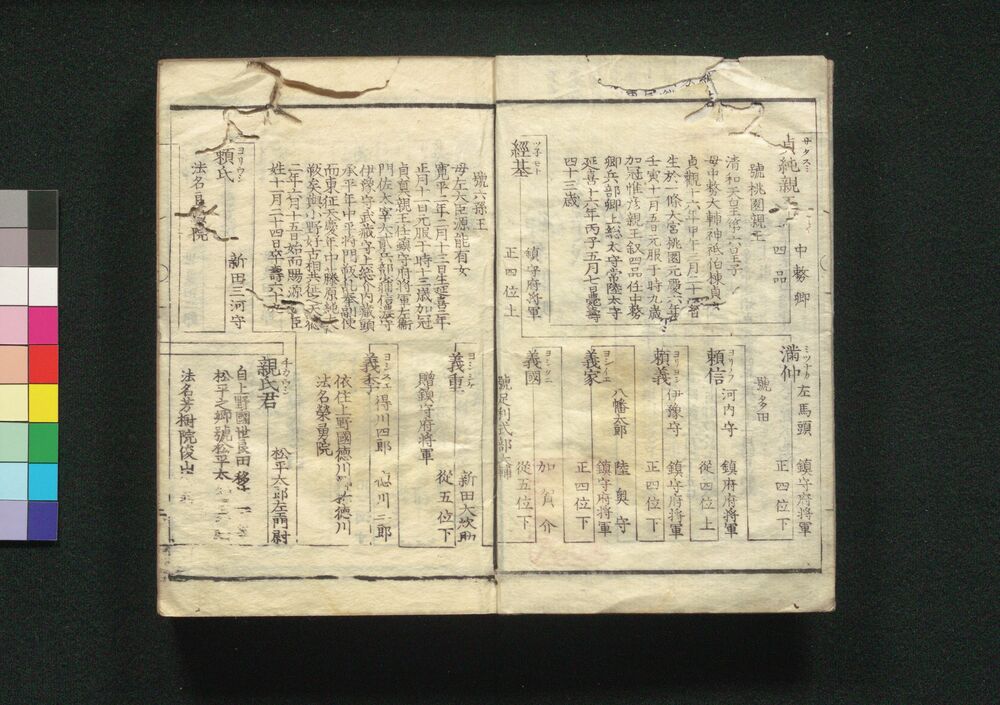 サタスミ
貞純親王
中務卿
四品
號桃園親王
清和天皇第六皇子
母中務大輔神祇伯棟貞女
貞觀十六年甲午三月二十三日
生於一條大宮桃園元慶六年
壬寅十月五日元服于時九歳
加冠惟彦親王叙四品任中務
卿兵部卿上総太守常陸太守
延喜十六年丙子五月七日薨壽
四十三歳
ツ子モト
經基
鎮守府將軍
正四位上
ミツナカ
満仲
左馬頭
鎮守府將軍
正四位下
號多田
ヨリノフ
頼信
河内守
鎮府府將軍
從四位上
ヨリヨシ
頼義
伊豫守
鎮守府將軍
正四位下
ヨシイエ
義家
八幡太郎
陸奥守
鎮守府將軍
正四位下
ヨシクニ
義國
加賀介
從五位下
號足利式部大輔
號六孫王
母左大臣源能有女
寛平二年二月十三日生延喜三年
正月十一日元服于時十三歳加冠
貞真親王任鎮守府將軍左衛
門佐太宰大貳兵部少輔信濃守
伊豫守武蔵守上総介内蔵頭
承平年中平將門叛乱奉副使
而東征天慶年中藤原純友
叛矣與小野好古相共征之天徳
二年六月十五日始而賜源朝臣
姓十一月二十四日卒壽六十二
ヨリウシ
頼氏
新田三河守
法名 院
ヨシシケ
義重
新田大炊助
從五位下
贈鎮守府將軍
ヨシスエ
義季
得川四郎
徳川三郎
依住上野國徳川 徳川
法名榮勇院
チカウシ
親氏君
松平太郎左衛門尉
自上野國世良田移
松平之郷號松平太
法名芳樹院俊山